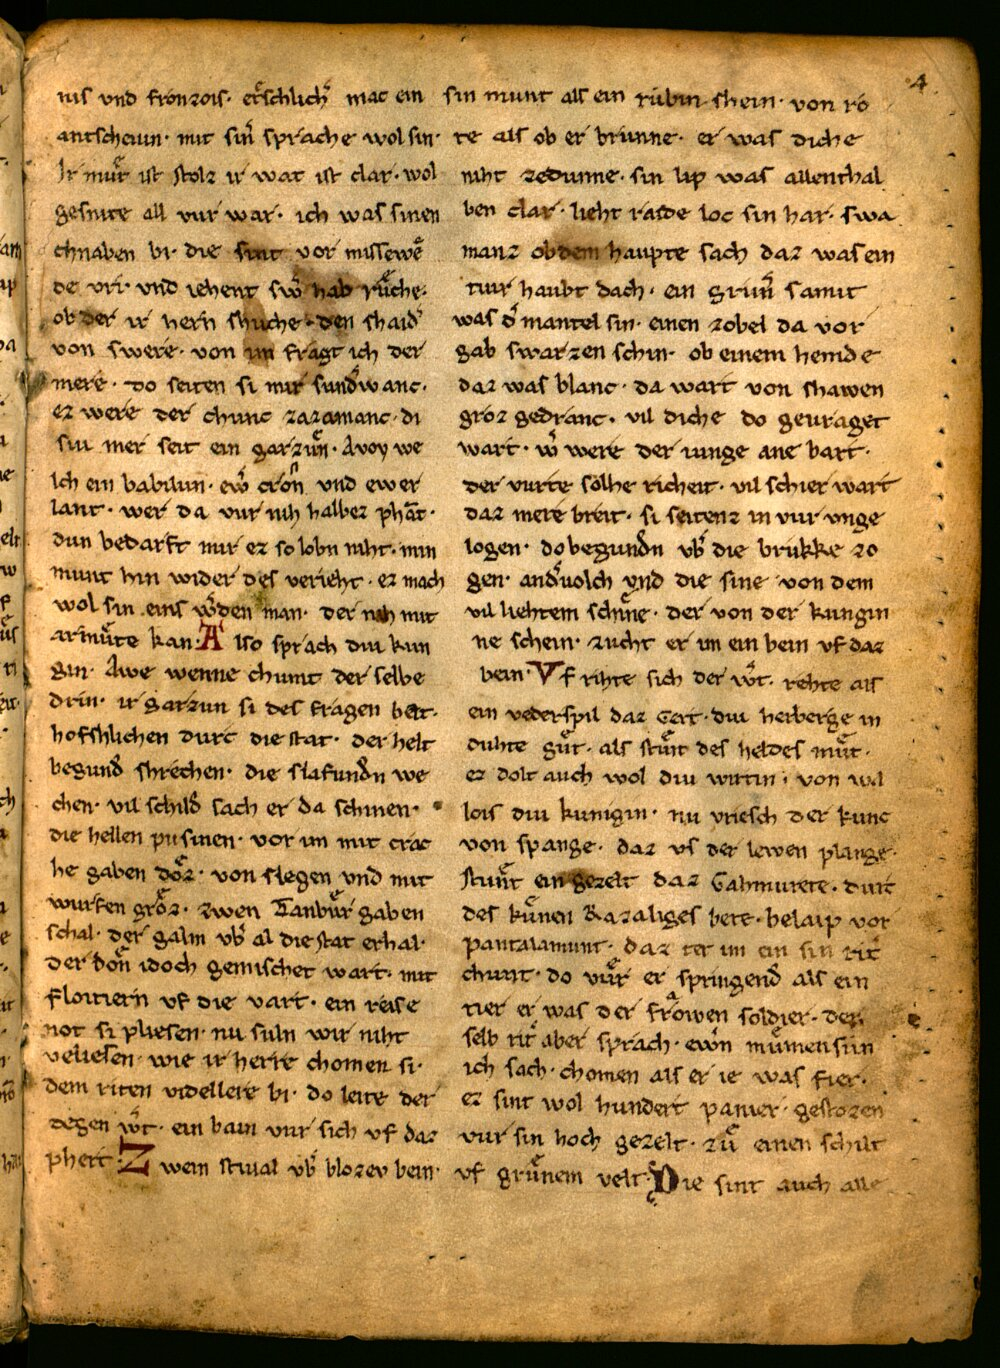 4
nis vnd fronzois. erͤschlichˀ mac ein
antschevun. mit sinˀ sprache wol sin.
Ir muͤr ist stolz ir wat ist clar. wol
gesnite all vur war. ich was sinen
chnaben bi. die sint vor missewē
de vri. vnd iehent swˀ hab ruͤche.
ob der ir hern shuche. den shaidˀ
von swere. von im fragt ich der
mere. do seiten si mir sundˀ wanc.
ez were der chunc zazamanc. di
siu mer seit ein garzuͤn. Avoy we
lch ein babilun. ewˀ cron vnd ewer
lant. wer da vur nih halbez phāt.
dun bedarft mir ez so lobn niht. min
munt hin wider des verieht. ez mach
wol sin eins wˀden man. der nih mit
armuͤte kan. Also sprach diu kun
gin. Awe wenne chumt der selbe
drin. ir garzun si des fragen bat.
hofshlichen durc die stat. der helt
begundˀ shrechen. die slafundn we
chen. vil schildˀ sach er da schinen.
die hellen pusinen. vor im mit crac
he gaben doͤz. von slegen vnd mit
wurfen groͤz. zwen Tanbuͤr gaben
schal. der galm vbˀ al die stat erhal.
der don idoch gemischet wart. mit
floitiern vf die vart. ein reise
not si pliesen. nu suln wir niht
veliesen. wie ir herre chomen si.
dem riten videllere bi. do leite der
degen wˀt. ein bain vur sich vf daz
phert. Zwein stiual vbˀ blozev bein.
sin munt als ein rubin shein. von ro
te als ob er brunne. er was diche
niht zedunne. sin lip was allenthal
ben clar. lieht raide loc sin har. swa
manz ob dem haupte sach daz was ein
tiur haubt dach. ein grunˀ samit
was dˀ mantel sin. einen zobel da vor
gab swarzen schin. ob einem hemde
daz was blanc. da wart von shawen
groz gedranc. vil diche do geuraget
wart. wˀ were der iunge ane bart.
der vurte solhe richeit. vil schier wart
daz mere breit. si seitenz in vur vnge
logen. do begundn vbˀ die brukke zo
gen. andˀ uolch vnd die sine von dem
vil liehtem schine. der von der kungin
ne schein. zucht er im ein bein vf daz
bein. Vf rihte sich der wˀt. rehte als
ein vederspil daz gert. diu herberge in
duhte guͤt. als stuͤnt des heldes muͤt.
ez dolt auch wol diu wirtin. von wa
lois diu kunigin. nu vriesch der kunc
von spange. daz vf der lewen plange.
stuͤnt ein gezelt daz Gahmurete. durt
des kuͤnen Razaliges bete. belaip vor
pantalamunt. daz tet im ein sin ritˀ
chunt. do vuͤr er springendˀ als ein
tier er was der fraͤwen soldier. der
selb ritˀ aber sprach. ewrn muͤmen sun
ich sach. chomen als er ie was fier.
ez sint wol hundert panier. gestozen
vur sin hoch gezelt. zuͤ einen schilt
vf gruͤnem velt. Die sint auch alle